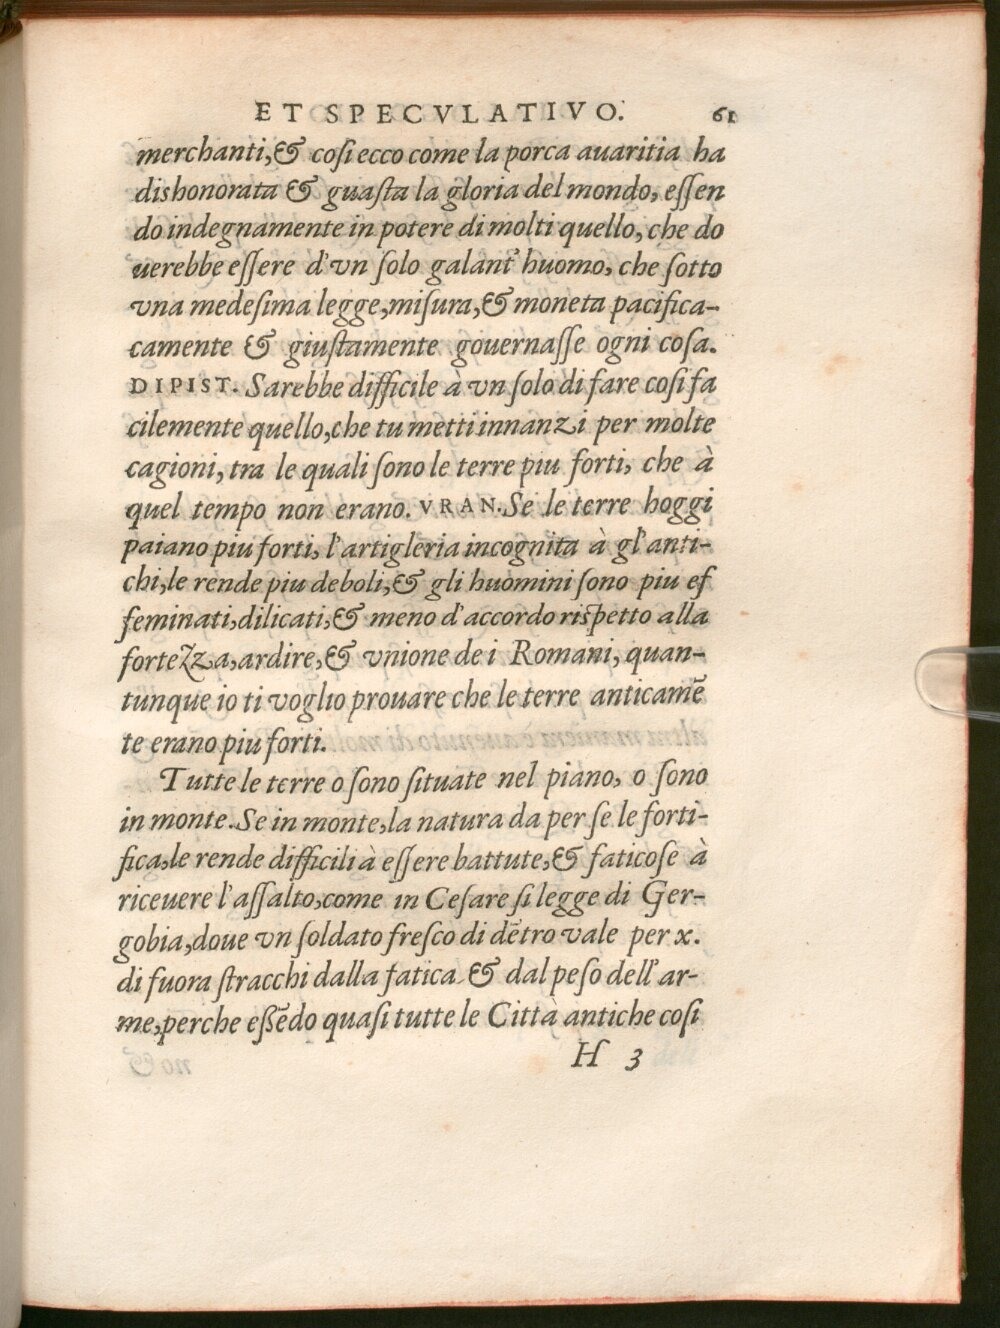 ET SPECVLATIVO. 61
merchanti,& cosi ecco come la porca auaritia ha
dishonorata & guasta la gloria del mondo, essen
do indegnamente in potere di molti quello, che do
uerebbe essere d'vn solo galant' huomo, che sotto
vna medesima legge,misura,& moneta pacifica-
camente & giustamente gouernasse ogni cosa.
DIPIST. Sarebbe difficile à vn solo di fare cosi fa
cilemente quello,che tu metti innanzi per molte
cagioni, tra le quali sono le terre piu forti, che à
quel tempo non erano. VRAN. Se le terre hoggi
paiano piu forti, l'artigleria incognita à gl'anti-
chi,le rende piu deboli,& gli huomini sono piu ef
feminati,dilicati,& meno d'accordo rispetto alla
fortezza,ardire,& vnione de i Romani, quan-
tunque io ti voglio prouare che le terre anticamē
te erano piu forti.
Tutte le terre o sono situate nel piano, o sono
in monte. Se in monte,la natura da per se le forti-
fica,le rende difficili à essere battute,& faticose à
riceuere l'assalto,come in Cesare si legge di Ger-
gobia,doue vn soldato fresco di dētro vale per x.
di fuora stracchi dalla fatica & dal peso dell'ar-
me,perche essēdo quasi tutte le Città antiche cosi
H 3